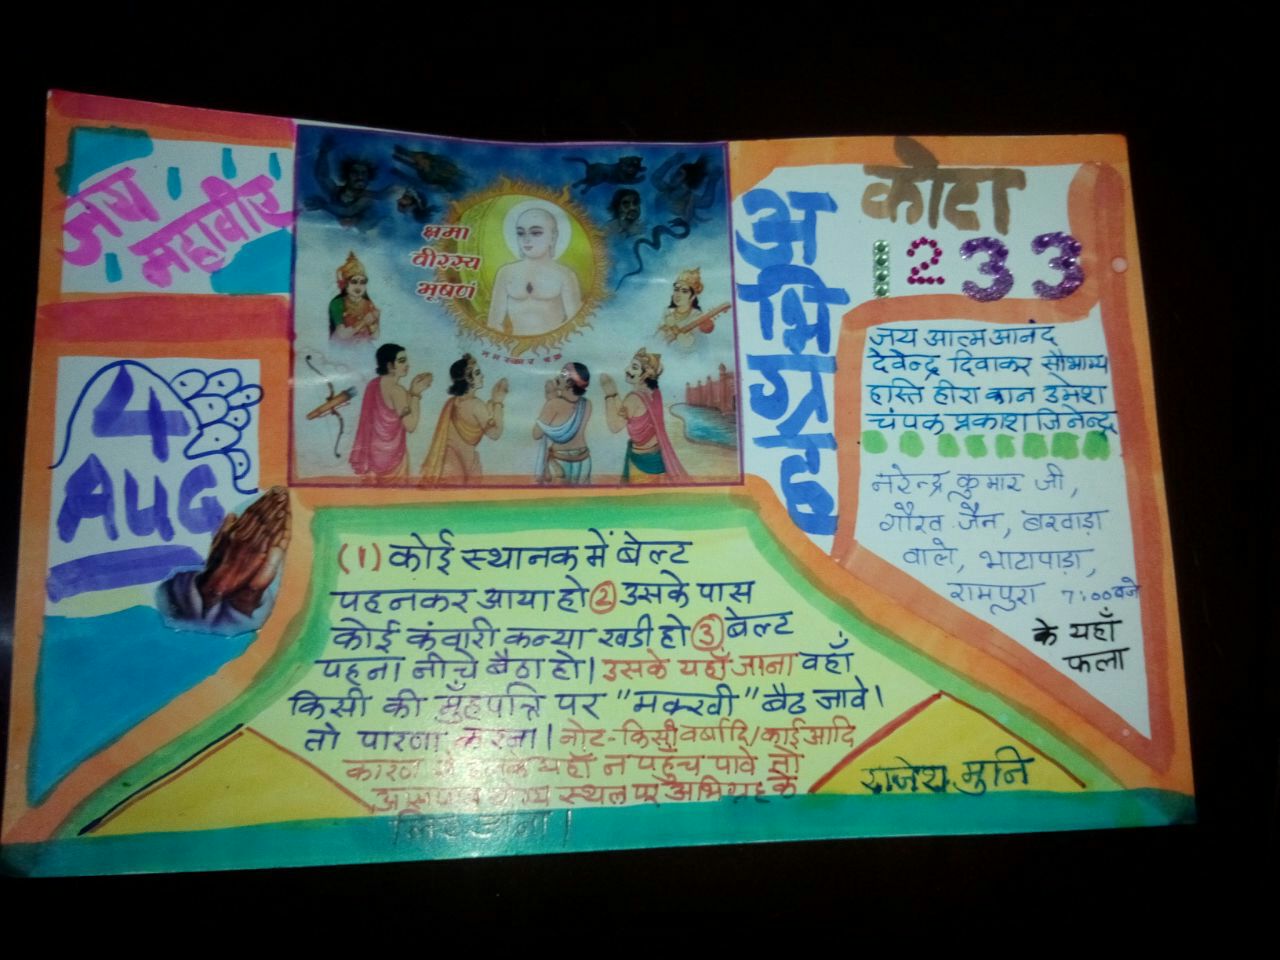 जय
महावीर
4
AUG
क्षमा
वीरस्य
भूषणं
अभिग्रह
कोटा
1233
जय आत्म आनंद
देवेन्द्र दिवाकर सौभाग्य
हस्ति हीरा कान उमेश
चंपक प्रकाश जिनेन्द्र
नरेन्द्र कुमार जी,
गौरव जैन, बरवाड़ा
वाले, भाटापाड़ा,
रामपुरा 7:00 बजे
के यहाँ
फला
(1) कोई स्थानक में बेल्ट
पहनकर आया हो (2) उसके पास
कोई कंवारी कन्या खडी हो (3) बेल्ट
पहना नीचे बैठा हो। उसके यहाँ जाना वहाँ
किसी की मुँहपत्ति पर "मक्खी" बैठ जावे।
तो पारणा करना। नोट-किसी वर्षादि/काई आदि
कारण यहाँ न पहुँच पावे तो
स्थल पर अभिग्रह के
लिए
राजेश मुनि